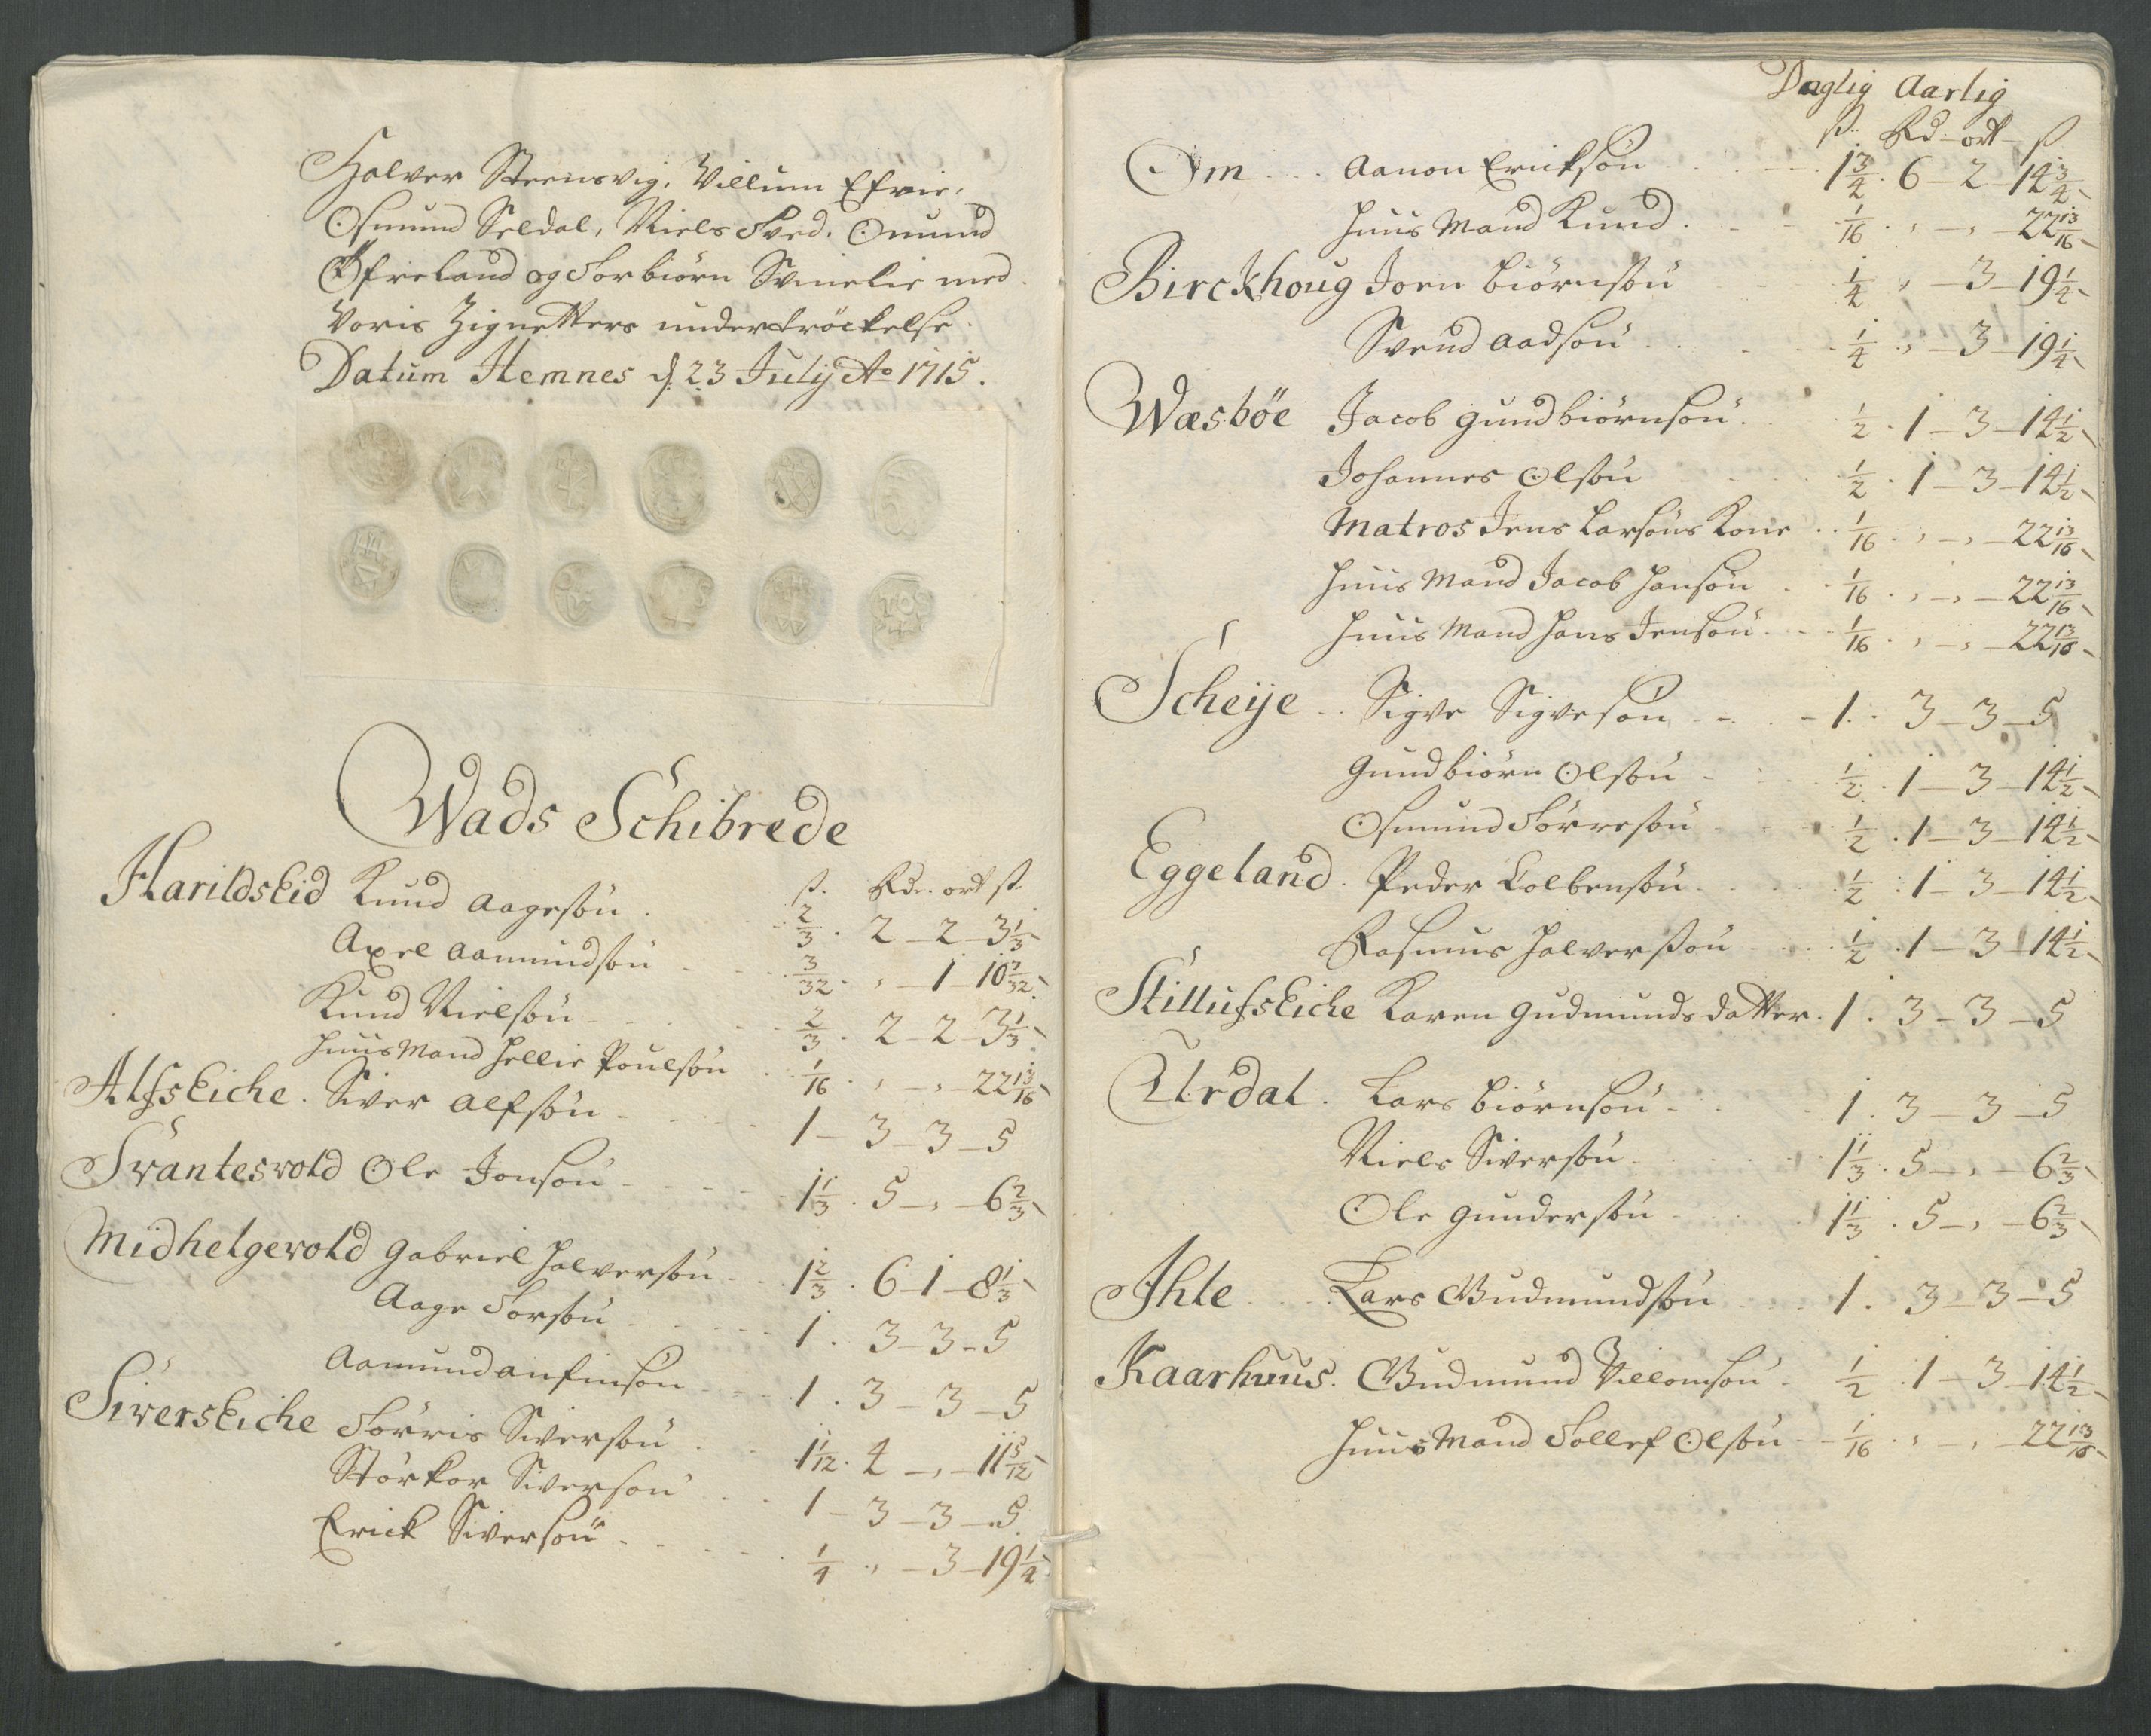 Halver Steensvig, Villum Efrie,
Osmund Seldal, Niels Tved, Omund
Øfreland og Torbiörn Svinelie med
Voris Zignetters undertröckelse.
Datum Hemnes d. 23 Julij Ao 1715.
Wads Schibrede
ß. Rdr. ort ß
HarildsEid Knud Aagesön . 2/3 . 2 - 2 - 3 1/3
Axel Aamundsön 3/32 . , - 1 - 10 7/32
Knud Nielsön 2/3 . 2 - 2 - 3 1/3
Huus Mand Hellie Poulsön 1/16 . , - , - 22 13/16
AlfsEiche . Siver Alfsön 1 - 3 - 3 - 5
Svantesvold Ole Jonsön 1 1/3 . 5 - , - 6 2/3
Midhelgevold Gabriel Halversön 1 2/3 . 6 - 1 - 8 1/3
Aage Torsön 1 . 3 - 3 - 5
Aamund Anfinsön 1 . 3 - 3 - 5
SiversEiche Törris Siversön 1 1/12 . 4 - , - 11 5/12
Störkor Siversön 1 - 3 - 3 - 5
Erick Siversön . 1/4 . , - 3 - 19 1/4
Daglig Aarlig
ß. Rd - ort - ß
Om Aanon Ericksön 1 3/4 . 6 - 2 - 14 3/4
Huus Mand Knud . 1/16 . , - , - 22 13/16
Birckhoug Joen Biörnsön 1/4 , - 3 - 19 1/4
Svend Aadsön 1/4 . , - 3 - 19 1/4
Wæsböe Jacob Gundbiörnsön . 1/2 . 1 - 3 - 14 1/2
Johannes Olsön 1/2 . 1 - 3 - 14 1/2
Matros Jens Larsöns Kone 1/16 . , - , - 22 13/16
Huus Mand Jacob Hansön 1/16 . , - , - 22 13/16
Huus Mand Hans Jensön 1/16 . , - , - 22 13/16
Scheije Sigve Sigvesön 1 . 3 - 3 - 5
Gundbiörn Olsön 1/2 . 1 - 3 - 14 1/2
Osmund Törresön 1/2 . 1 - 3 - 14 1/2
Eggeland . Peder Colbensön 1/2 . 1 - 3 - 14 1/2
Rasmus Halversön 1/2 . 1 - 3 - 14 1/2
StillufsEiche Karen Gudmunds Datter . 1 . 3 - 3 - 5
Urdal . Lars Biörnsön 1 . 3 - 3 - 5
Niels Siversön 1 1/3 . 5 - , - 6 2/3
Ole Gundersön 1 1/3 . 5 - , - 6 2/3
Ihle Lars Gudmundsön 1 . 3 - 3 - 5
Kaarhuus . Gudmund Villomsön 1/2 . 1 - 3 - 14 1/2
Huus Mand Tollef Olsön 1/16 . , - , - 22 13/16